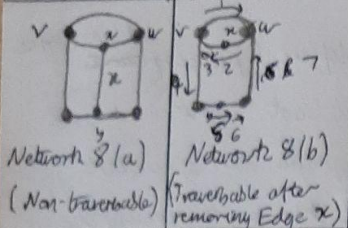 V x W
x
y
Network 8(a)
(Non-traversable)
1
V x W
3 2
4 7
5 6
Network 8(b)
(Traversable after
removing Edge x)